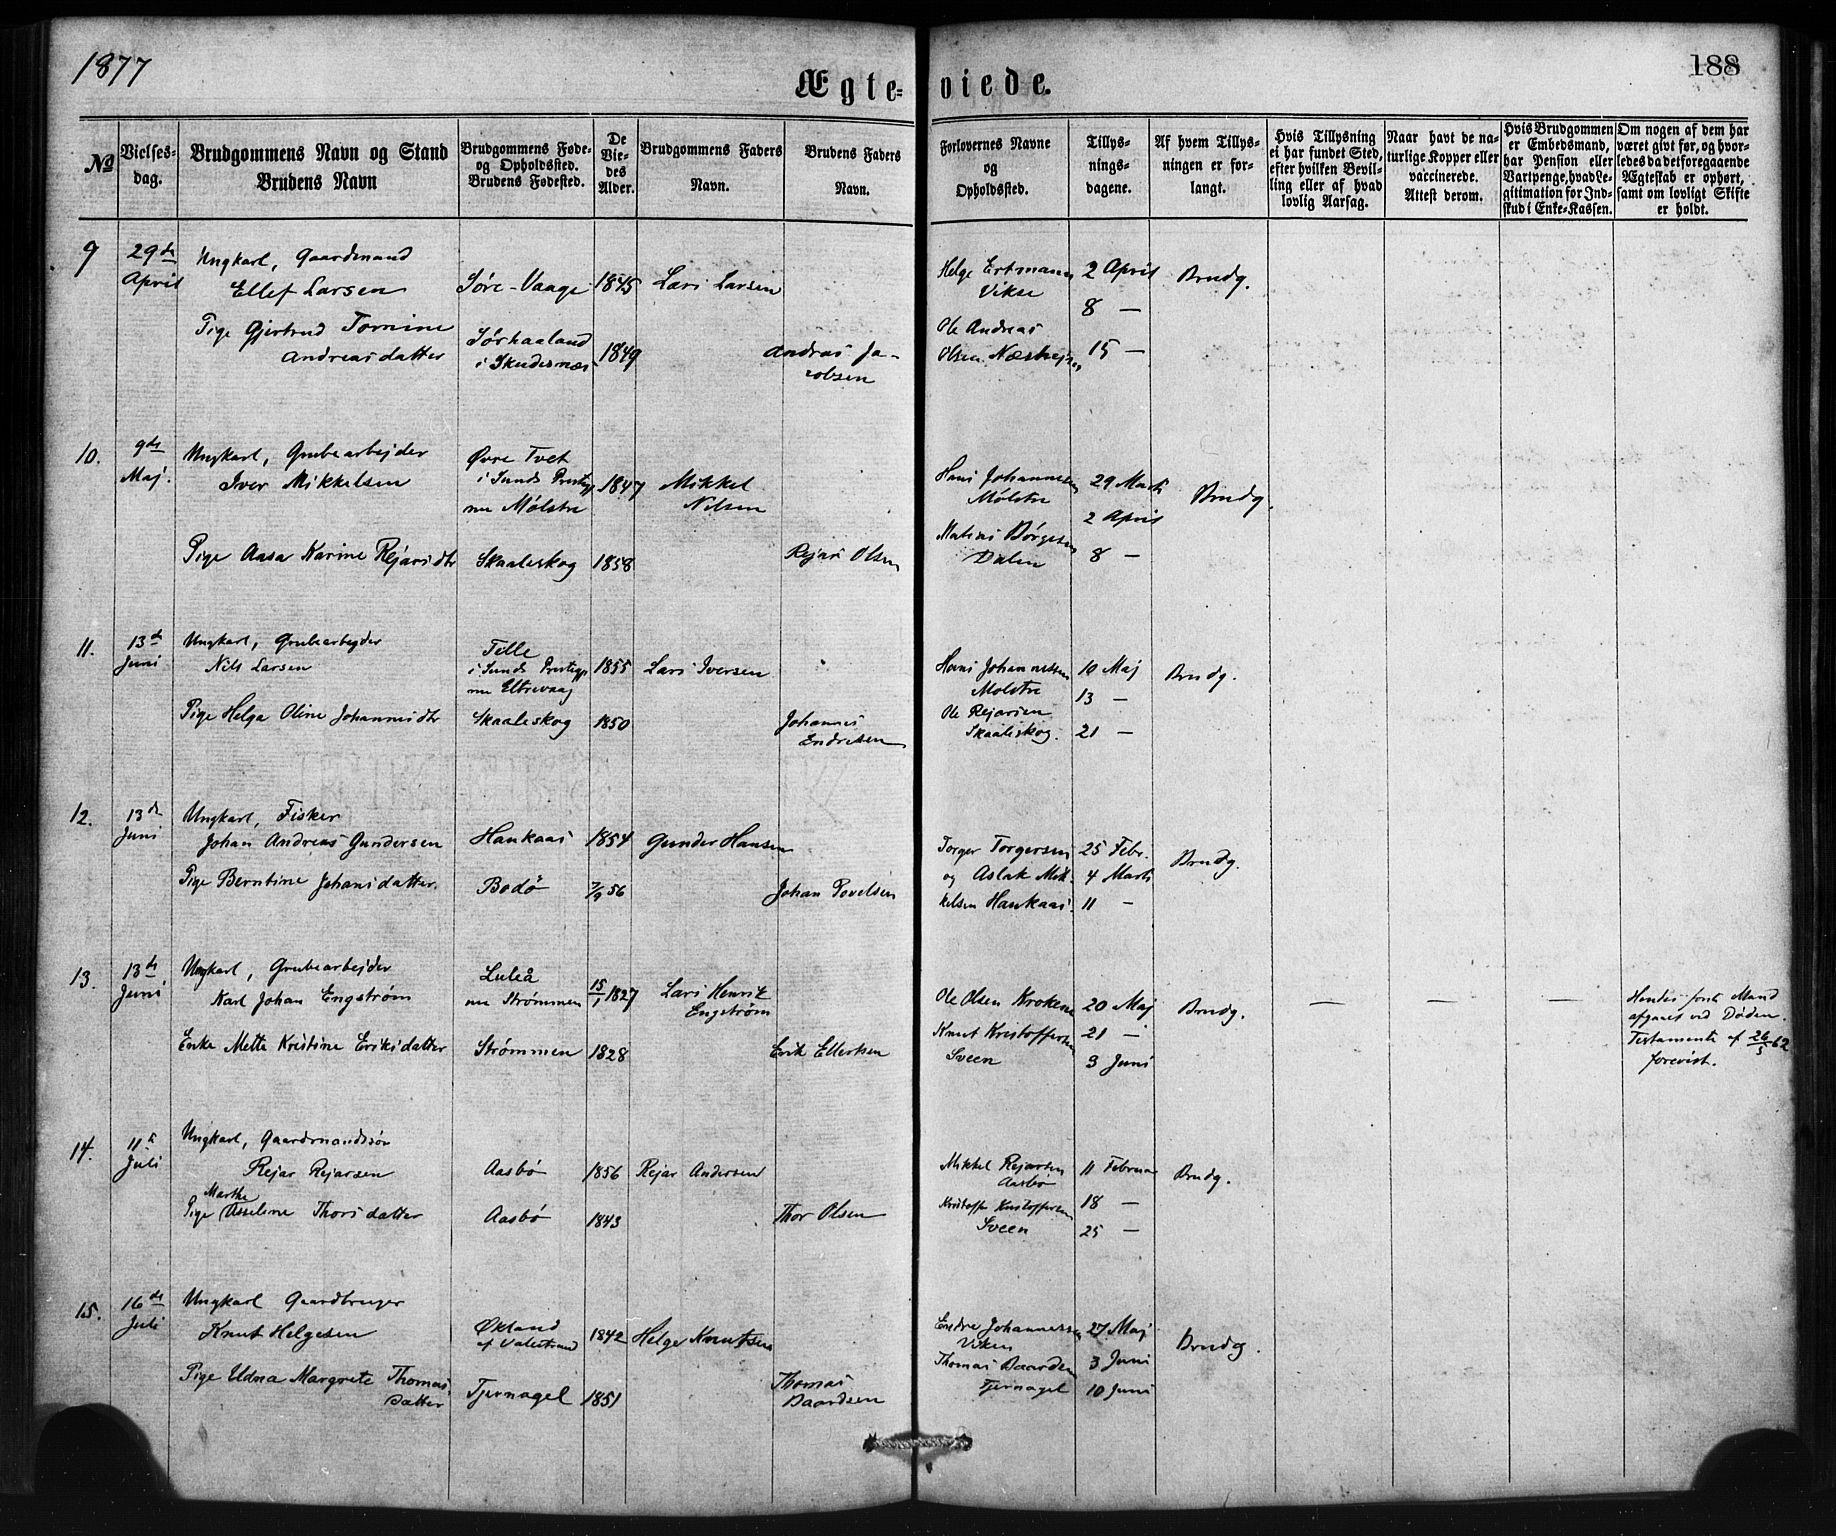 1877
188
Ægte=viede.
No
Vielses-dag.
Brudgommens Navn og Stand
Brudens Navn
Brudgommens Føde= og Opholdssted.
Brudens Fødested.
De Vie-des Alder.
Brudgommens Faders Navn.
Brudens Faders Navn.
Forlovernes Navne og Opholdssted.
Tillys-nings-dagene.
Af hvem Tillys-ningen er for-langt.
Hvis Tillysning ei har fundet Sted, efter hvilken Bevil-ling eller af hvad lovlig Aarsag.
Naar havt de na-turlige Kopper eller vaccinerede. Attest derom.
Hvis Brudgommen er Embedsmand, har Pension eller Vartpenge, hvad Le-gitimation for Ind-skud i Enke=Kassen.
Om nogen af dem har været gift før, og hvor-ledes da det foregaaende Ægteskab er ophørt, samt om lovligt Skifte er holdt.
9 29de April
Ungkarl, Gaardmand
Ellef Larsen Søre-Vaage 1845 Lars Larsen
Pige Gjertrud Tomine
Andreasdatter Sørhaaland i Skudesnæs 1849 Andreas Ja-cobsen
Helge Ertmann Vikse
Ole Andreas Olsen
2 April
8 —
15 —
Brudg.
10. 9de Maj.
Ungkarl, Grubearbejder
Iver Mikkelsen
Øvre Tvet
i Sunds Prestgj
nu Mølstre 1847 Mikkel Nilsen
Pige Aasa Karine Rejarsdtr Skaaleskog 1858 Rejar Olsen
Hans Johannessen Mølstre
Matias Børgesen Dalen
29 Marts
2 April
8 —
Brudg.
11. 13de Juni
Ungkarl, Grubearbejder
Nils Larsen
Tille
i Sunds Prestgj.
nu Eltrevaag 1855 Lars Iversen
Pige Helga Oline Johannesdtr Skaaleskog 1850 Johannes Endresen
Hans Johannessen Molstre
Ole Rejarsen Skaaleskog.
10 Maj
13 —
21 —
Brudg.
12. 13de Juni
Ungkarl, Fisker
Johan Andreas Gundersen Haukaas 1854 Gunder Hansen
Pige Berntine Johansdatter. Bodø 7/9 56 Johan Povelsen
Torger Torgersen
og Aslak Mik-
kelsen Haukaas.
25 Febr.
4 Marts
11 —
Brudg.
13. 13de Juni
Ungkarl, Grubearbejder
Karl Johan Engstrøm
Luleå
nu Strømmen 15/1 1827 Lars Henrik Engstrøm
Enke Mette Kristine Eriksdatter Strømmen 1828 Erik Ellertsen
Ole Olsen Krokene
Knut Kristoffersen Sveen
20 Maj
21 —
3 Juni
Brudg.
— — —
Hendes første Mand
afgaaet ved Døden.
Testamente af 26/5 62
forevist.
14. 11te Juli
Ungkarl, Gaardmandssøn
Rejar Rejarsen Aasbø 1856 Rejar Andersen
Marthe
Pige Asseline Thorsdatter Aasbø 1843 Thor Olsen
Mikkel Rejarsen Aasbø
Kristoffer Kristoffersen Sveen
11 Februar
18 —
25 —
Brudg.
15. 16de Juli
Ungkarl Gaardbruger
Knut Helgesen
Økland
af Valestrand 1842 Helge Knutsen
Pige Udna Margrete Thomas
datter Tjernagel 1851 Thomas Baardsen
Endre Johannessen Viken
Thomas Baardsen Tjernagel
27 Maj
3 Juni
10 Juni
Brudg.